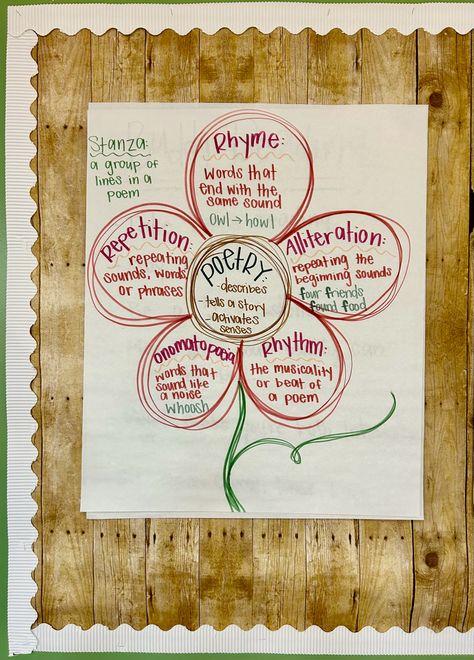 Stanza:
a group of
lines in a
poem
Rhyme:
words that
end with the
same sound
owl → howl
Repetition:
repeating
sounds, words
or phrases
POETRY:
- describes
- tells a story
- activates
senses
Alliteration:
repeating the
beginning sounds
four friends
found food
onomatopoeia
words that
sound like
a noise
whoosh
Rhythm:
the musicality
or beat of
a poem